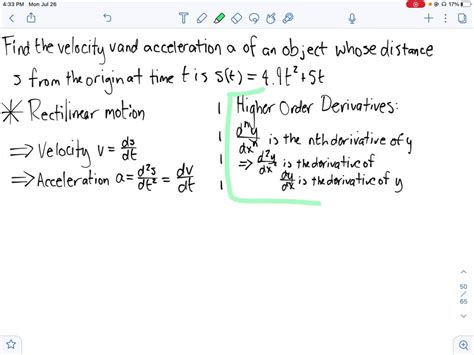 4:33 PM Mon Jul 26
17%
Find the velocity v and acceleration a of an object whose distance
s from the origin at time t is s(t) = 4.9t² + 5t
* Rectilinear motion
⇒ Velocity v = ds/dt
⇒ Acceleration a = d²s/dt² = dv/dt
Higher Order Derivatives:
dⁿy/dxⁿ is the nth derivative of y
⇒ d²y/dx² is the derivative of
dy/dx is the derivative of y
50
/
65